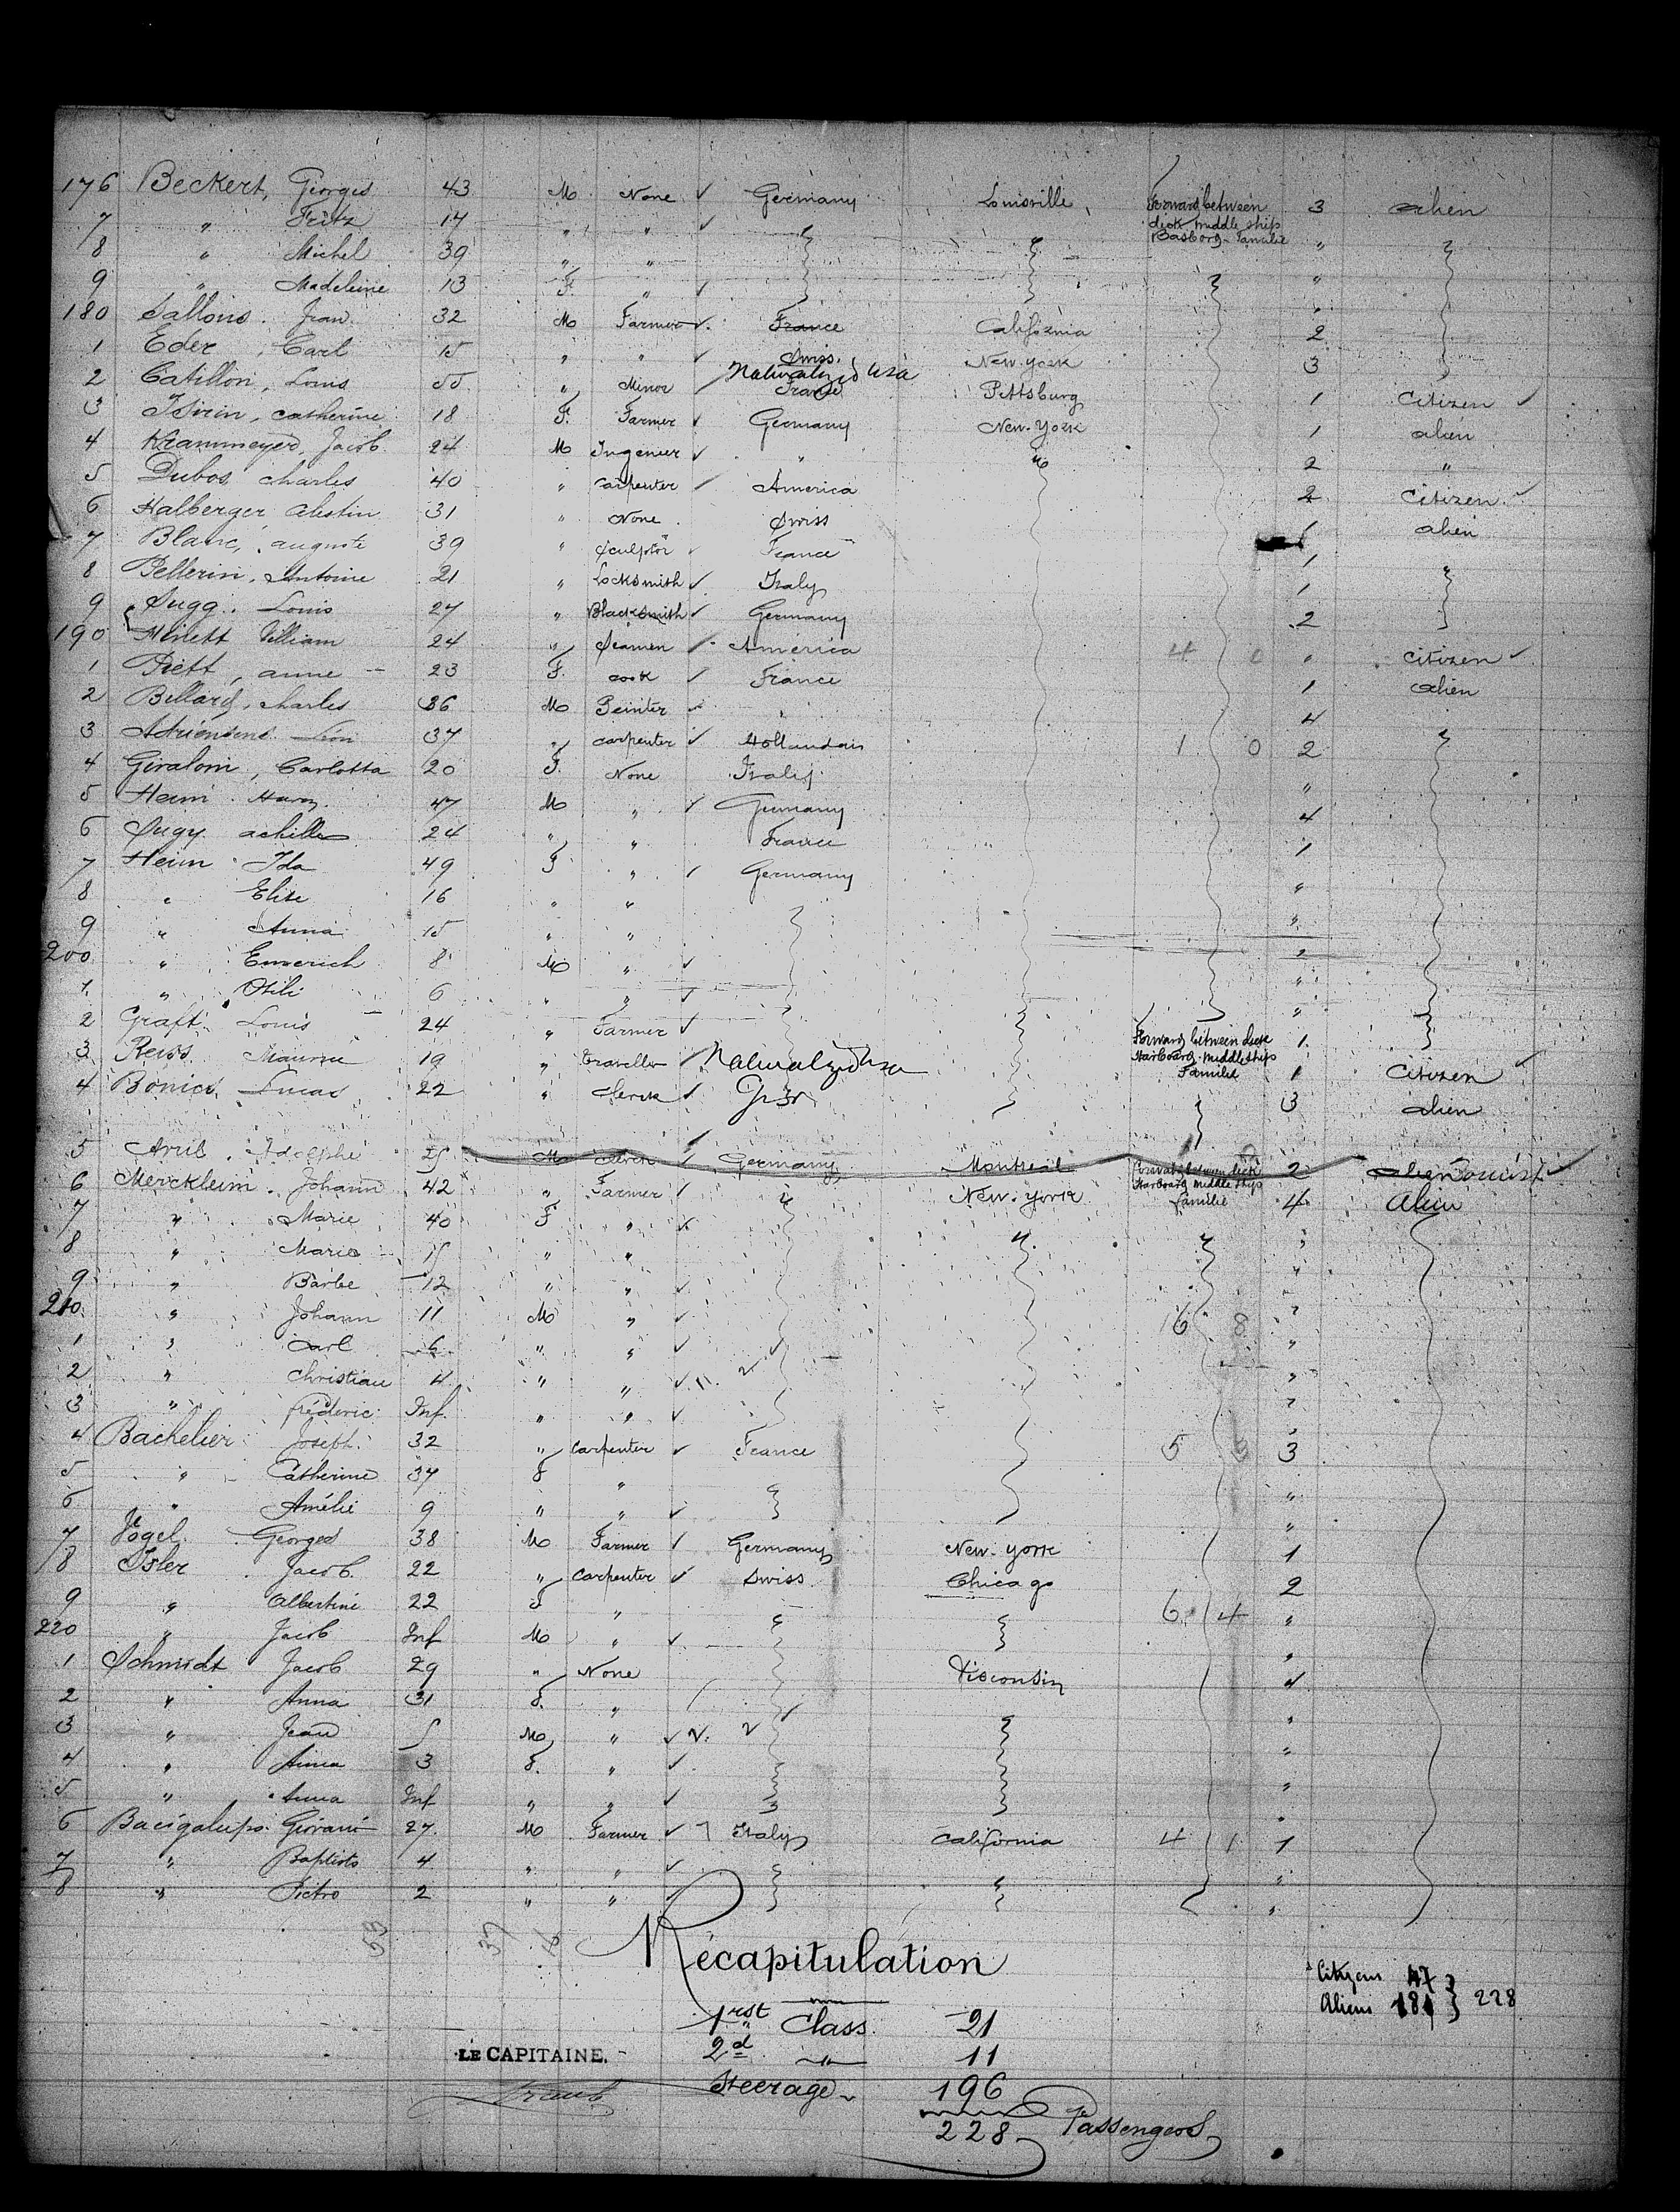 176 Beckert, Georges 43 M None ✓ Germany Louisville, Forward between deck middle ship Basbord - Familie 3 alien
7 " Fritz 17 " " ✓
8 " Michel 39 " " "
9 " Madeleine 13 F. " ✓ "
180 Sallons. Jean. 32 M Farmer ✓ France California 2
1 Eder, Carl 15 " " ✓ Swiss. New-York 3
2 Catillon, Louis 55 " Minor Naturalized USA France Pittsburg 1 Citizen ✓
3 catherine 18 F. Farmer ✓ Germany New-York 1 alien
4 Krammeyer, Jacob 24 M Ingenieur ✓ " " 2 "
5 Dubos charles 40 " carpenter America 2 Citizen ✓
6 Halberger 31 " None Swiss 1 alien
7 Blanc, auguste 39 " Sculptor France 1 "
8 Pellerin, Antoine 21 " Locksmith ✓ Italy 1
9 Sugg. Louis 27 " Blacksmith ✓ Germany 2
190 William 24 " Seamen America 4 0 " citizen ✓
1 anne 23 F. cook ✓ France 1 alien
2 Billard, charles 36 M Peinter " 4
3 Léon 37 " carpenter ✓ Hollandais 1 0 2
4 Giraloni, Carlotta 20 F. None Italy "
5 Heim 47 M " ✓ Germany 4
6 Sugy achille 24 " " France 1
7 Heim Ida 49 F " ✓ Germany "
8 " Elise 16 " "
9 " Anna 15 " " "
200 " Emerich 8 M " ✓ "
1 " Otili 6 " " ✓ "
2 Graft Louis 24 " Farmer ✓ Forward between deck Starboard middle ships Familie 1
3 Reiss Maurice 19 " traveller ✓ Naturalized Usa 1 Citizen ✓
4 Bonici Lucas 22 " clerck ✓ 3 alien
5 Adolphe 25 M clerck ✓ Germany Montreal Forward between deck Starboard middle ships Familie 2 alien Tourist ✓
6 Merckleim. Johann 42 " Farmer " New-York 4 Alien
7 " Marie 40 F " ✓ " " "
8 " Marie 15 " " "
9 " Barbe 12 " " ✓
210 " Johann 11 M " ✓ 16 8 "
1 " Carl 6 " " ✓ "
2 " Christian 4 " " ✓ "
3 " fréderic Inf. " " ✓ "
4 Bachelier Joseph 32 " carpenter ✓ France 5 3 3
5 " Catherine 37 F " "
6 " Amélie 9 " " ✓ "
7 Vogel Georges 38 M Farmer ✓ Germany New-York 1
8 Isler Jacob 22 " Carpenter ✓ Swiss Chicago 2
9 " Albertine 22 F " 6 4 "
220 " Jacob Inf M " ✓ "
1 Schmidt Jacob 29 " None Visconsin 4
2 " Anna 31 F. " "
3 " Jean 5 M " ✓ "
4 " Anna 3 F. " ✓ "
5 " Anna Inf " " ✓ "
6 Bacigalupo Giovani 27 M Farmer ✓ Italy California 4 1 1
7 " Baptisto 4 " " ✓ "
8 " Pietro 2 " " "
53 37 16
Récapitulation
Citizens 47
Aliens 181 } 228
1rst Class 21
2d " 11
LE CAPITAINE.
Steerage 196
228 Passengers